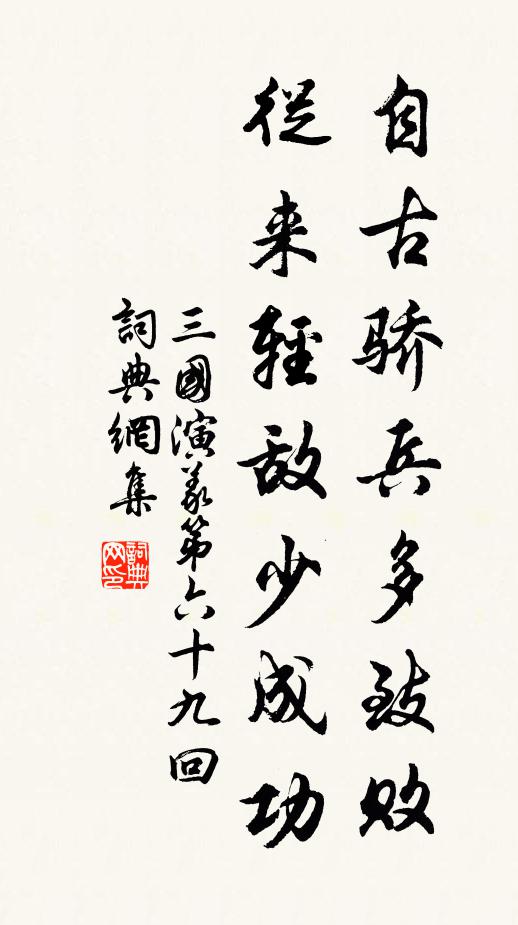 自古骄兵多致败
従来輕敌少成功
三國演义第六十九回
詞典網集
詞典网印